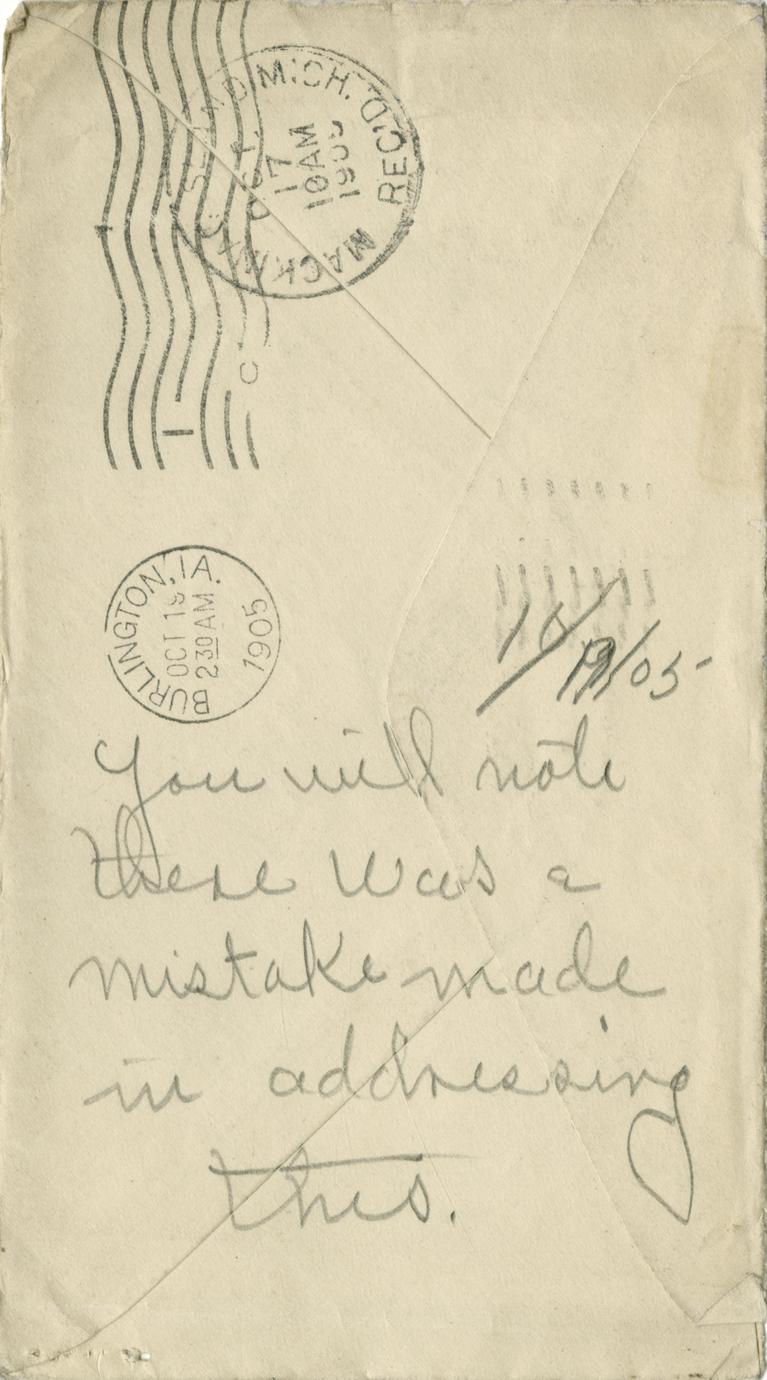 MACKINAC ISLAND MICH. REC'D.
OCT.
17
10 AM
1905
C
BURLINGTON, IA.
OCT 19
2 30 AM
1905
10/19/05
You will note
there was a
mistake made
in addressing
this.